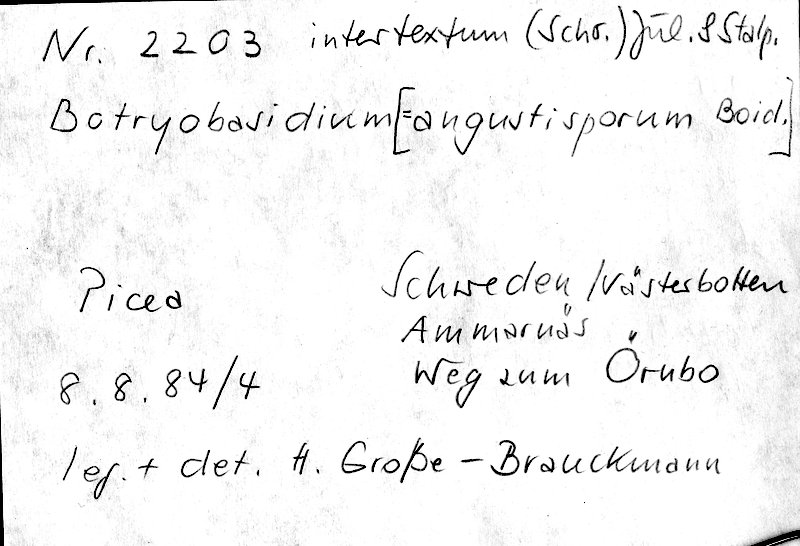 Nr. 2203 intertextum (Schw.) Jül. & Stalp.
Botryobasidium [= angustisporum Boid.]
Picea
Schweden / Västerbotten
Ammarnäs
8.8.84/4
Weg zum Örubo
leg. + det. H. Große - Brauckmann